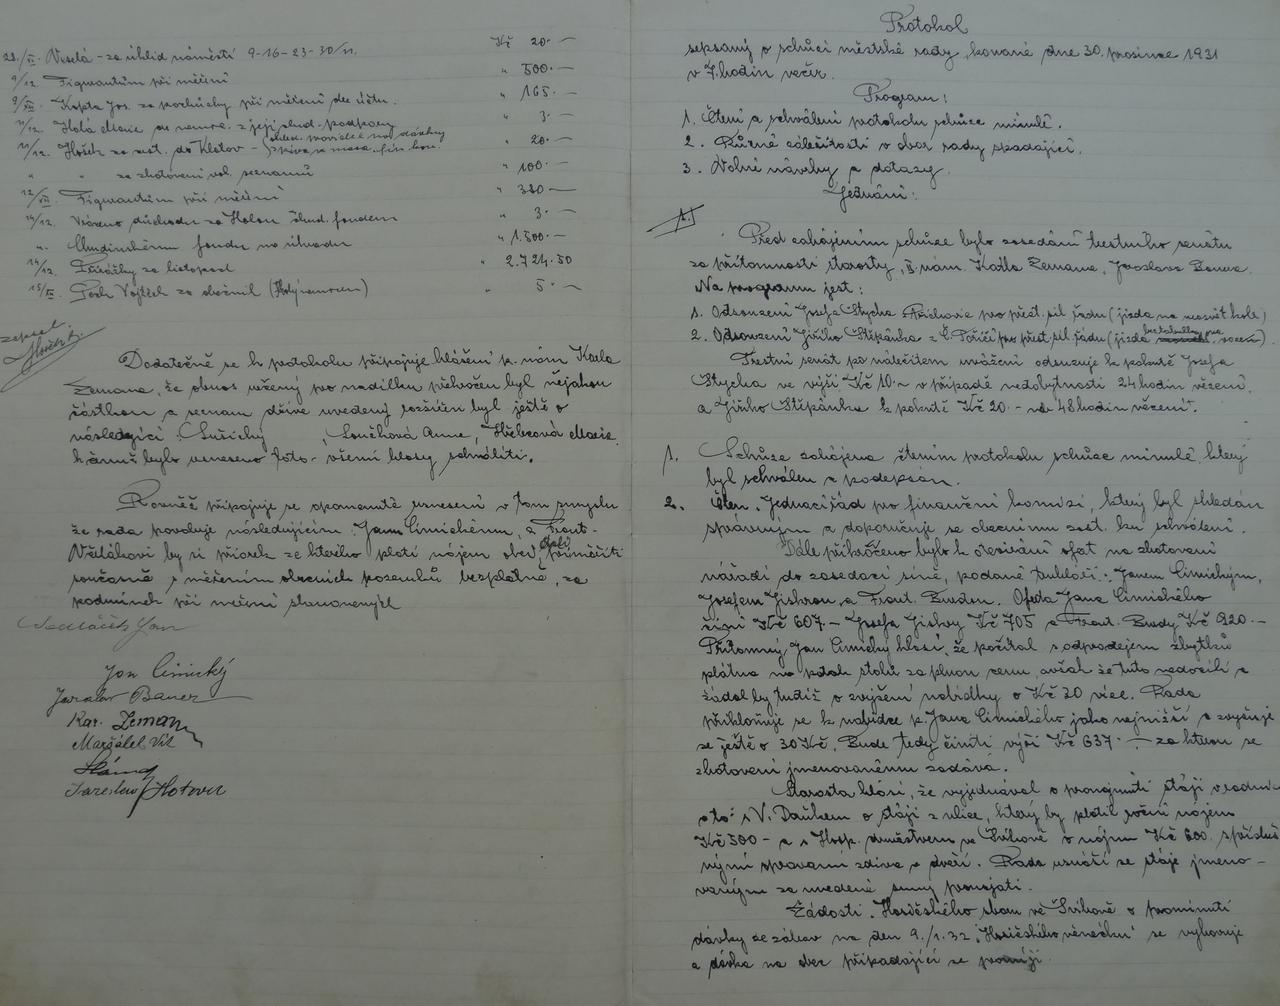 Veselá - za úklid náměstí 9-16-23-30/11. Kč 20.-
9/12. Figurantům při měření " 500.-
9/XII. Kopta Jos. za pochůzky při měření dle účtu. " 165.-
11/12. Holá Marie " 3.-
11/12. Hošek za cest. do Klatov - " 20.-
" " za zhotovení vol. seznamů " 100.-
12/XII. Figurantům při měření " 380.-
14/12. Vráceno důchodu za Holou chud. fondem " 3.-
" Chudinskému fondu na úhradu " 1.500.-
14/12. Přirážky za listopad " 2.724.50
15/XII. Vojtěch za " 5.-
zapsal
Dodatečně se k protokolu připojuje hlášení p. nám. Karla
Zemana, že obnos určený pro nadílku překročen byl nějakou
částkou a seznam dříve uvedený rozšířen byl ještě o
následující: Sušický , Součková Anna, Marie.
k čemuž bylo usneseno toto - všemi hlasy schváliti.
Rovněž připojuje se opomenuté usnesení v tom smyslu
že rada povoluje následujícím: Janu Cimickému, a Frant.
by si příorek ze kterého platí nájem obci, dali přiměřiti
současně s měřením obecních pozemků bezplatně, za
podmínek při měření stanovených
Sedláček Jan
Jan Cimický
Jaroslav Bauer
Kar. Zeman
Maršálek Vít
Jaroslav Hotovec
Protokol
sepsaný o schůzi městské rady, konané dne 30. prosince 1931
v 7. hodin večer.
Program:
1. Čtení a schválení protokolu schůze minulé.
2. Různé záležitosti v obor rady spadající.
3. Volné návrhy a dotazy.
Jednání:
Před zahájením schůze bylo zasedání trestního senátu
za přítomnosti starosty, II. nám. Karla Zemana, Jaroslava Bauera.
Na programu jest:
1. Odsouzení Josefa Stycha pro přest. sil. řádu (jízda na kole)
2. Odsouzení Jiřího Štěpánka z Č. Poříčí pro přest. sil. řádu (jízda bez tabulky )
Trestní senát po náležitém uvážení odsuzuje k pokutě Josefa
Stycha ve výši Kč 10.- v případě nedobytnosti 24 hodin vězení.
a Jiřího Štěpánka k pokutě Kč 20.- 48 hodin vězení.
1. Schůze zahájena čtením protokolu schůze minulé, který
byl schválen a podepsán.
2. Čten. Jednací řád pro finanční komisi, který byl shledán
správným a doporučuje se obecnímu zast. ku schválení.
Dále přikročeno bylo k otevírání ofert na zhotovení
nářadí do zasedací síně, podané truhláři: Janem Cimickým,
Josefem Jiskrou a Frant. Oferta Jana Cimického
činí Kč 607.- Josefa Jiskry Kč 705 a Frant. Kč 920.-
Přítomný Jan Cimický hlásí, že počítal s odprodejem zbytků
plátna na potah stolů za plnou cenu, avšak že tuto nedocílí a
žádal by tudíž o zvýšení nabídky o Kč 30 více. Rada
přikloňuje se k nabídce p. Jana Cimického jako nejnižší a zvyšuje
se ještě o 30 Kč. Bude tedy činiti výši Kč 637.- za kterou se
zhotovení jmenovanému zadává.
Starosta hlásí, že vyjednával o pronajmutí stájí v radnici
a to: s V. Daňkem o stáji z ulice, který by platil roční nájem
Kč 500 - a s Hosp. družstvem ve Švihově o nájmu Kč 600. s přísluš-
nými opravami zdiva a dveří. Rada usnáší se stáje jmeno-
vaným za uvedené sumy pronajati.
Žádosti. Hasičského sboru ve Švihově o prominutí
dávky ze zábav na den 9./1.32 "Hasičského věnečku" se vyhovuje
a dávka na obec připadající se promíjí.